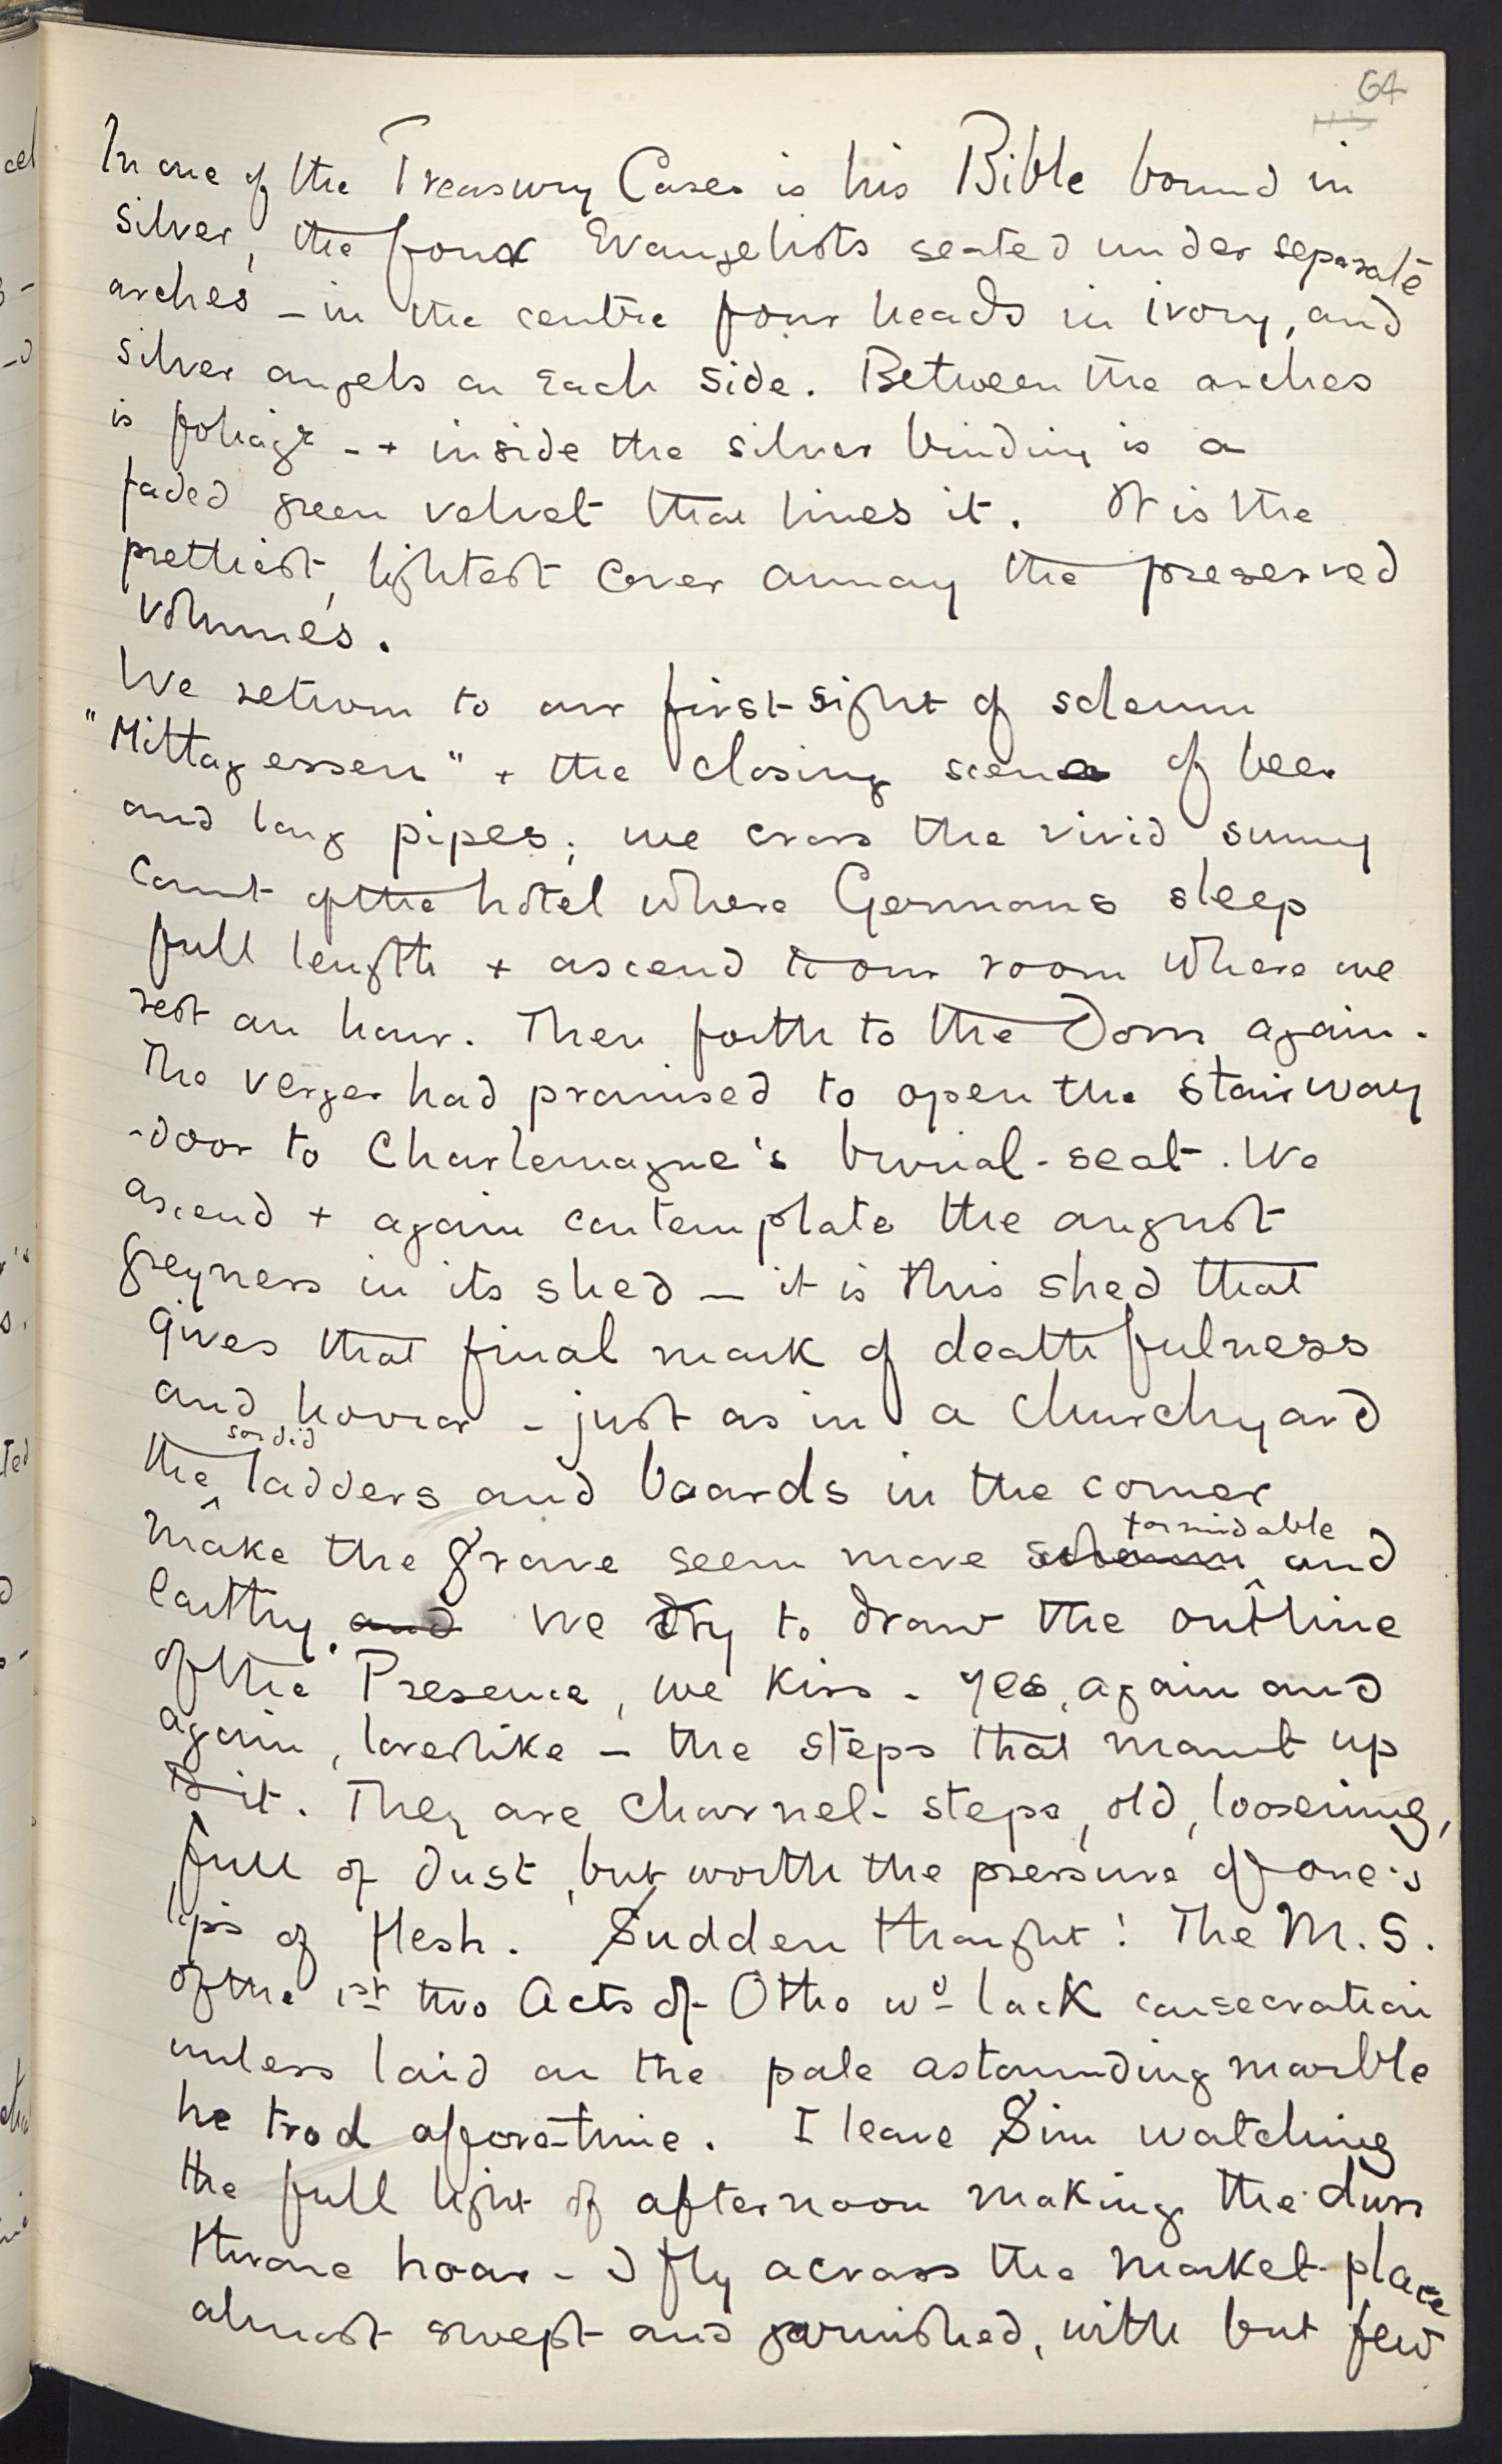 64
In one of the Treasury Cases is his Bible bound in
silver, the four Evangelists seated under separate
arches - in the centre four heads in ivory, and
silver angels on each side. Between the arches
is foliage - + inside the silver binding is a
faded green velvet that lines it. It is the
prettiest, lightest cover among the preserved
volumes.
We return to our first-sight of solemn
"Mittagessen" + the closing scene of beer
and long pipes; we cross the vivid sunny
Court of the hotel where Germans sleep
full length + ascend to our room where we
rest an hour. Then forth to the Dom again.
The verger had promised to open the stairway
-door to Charlemagne's burial-seat. We
ascend + again contemplate the august
greyness in its shed — it is this shed that
gives that final mark of deathfulness
and horror - just as in a churchyard
sordid
the ladders and boards in the corner
formidable
make the grave seem more solemn and
earthy. and We try to draw the outline
of the Presence, we kiss - yes, again and
again, loverlike - the steps that mount up
to it. They are charnel-steps, old, loosening,
full of dust, but worth the pressure of one's
lips of flesh. Sudden thought! The M.S.
of the 1st two Acts of Otho wd lack consecration
unless laid on the pale astounding marble
he trod afore-time. I leave Sim watching
the full light of afternoon making the dun
throne hoar - I fly across the market-place
almost swept and garnished, with but few